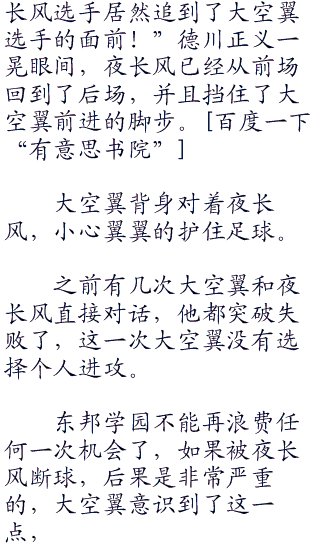 长风选手居然追到了大空翼
选手的面前！”德川正义一
晃眼间，夜长风已经从前场
回到了后场，并且挡住了大
空翼前进的脚步。[百度一下
“有意思书院”]
大空翼背身对着夜长
风，小心翼翼的护住足球。
之前有几次大空翼和夜
长风直接对话，他都突破失
败了，这一次大空翼没有选
择个人进攻。
东邦学园不能再浪费任
何一次机会了，如果被夜长
风断球，后果是非常严重
的，大空翼意识到了这一
点，